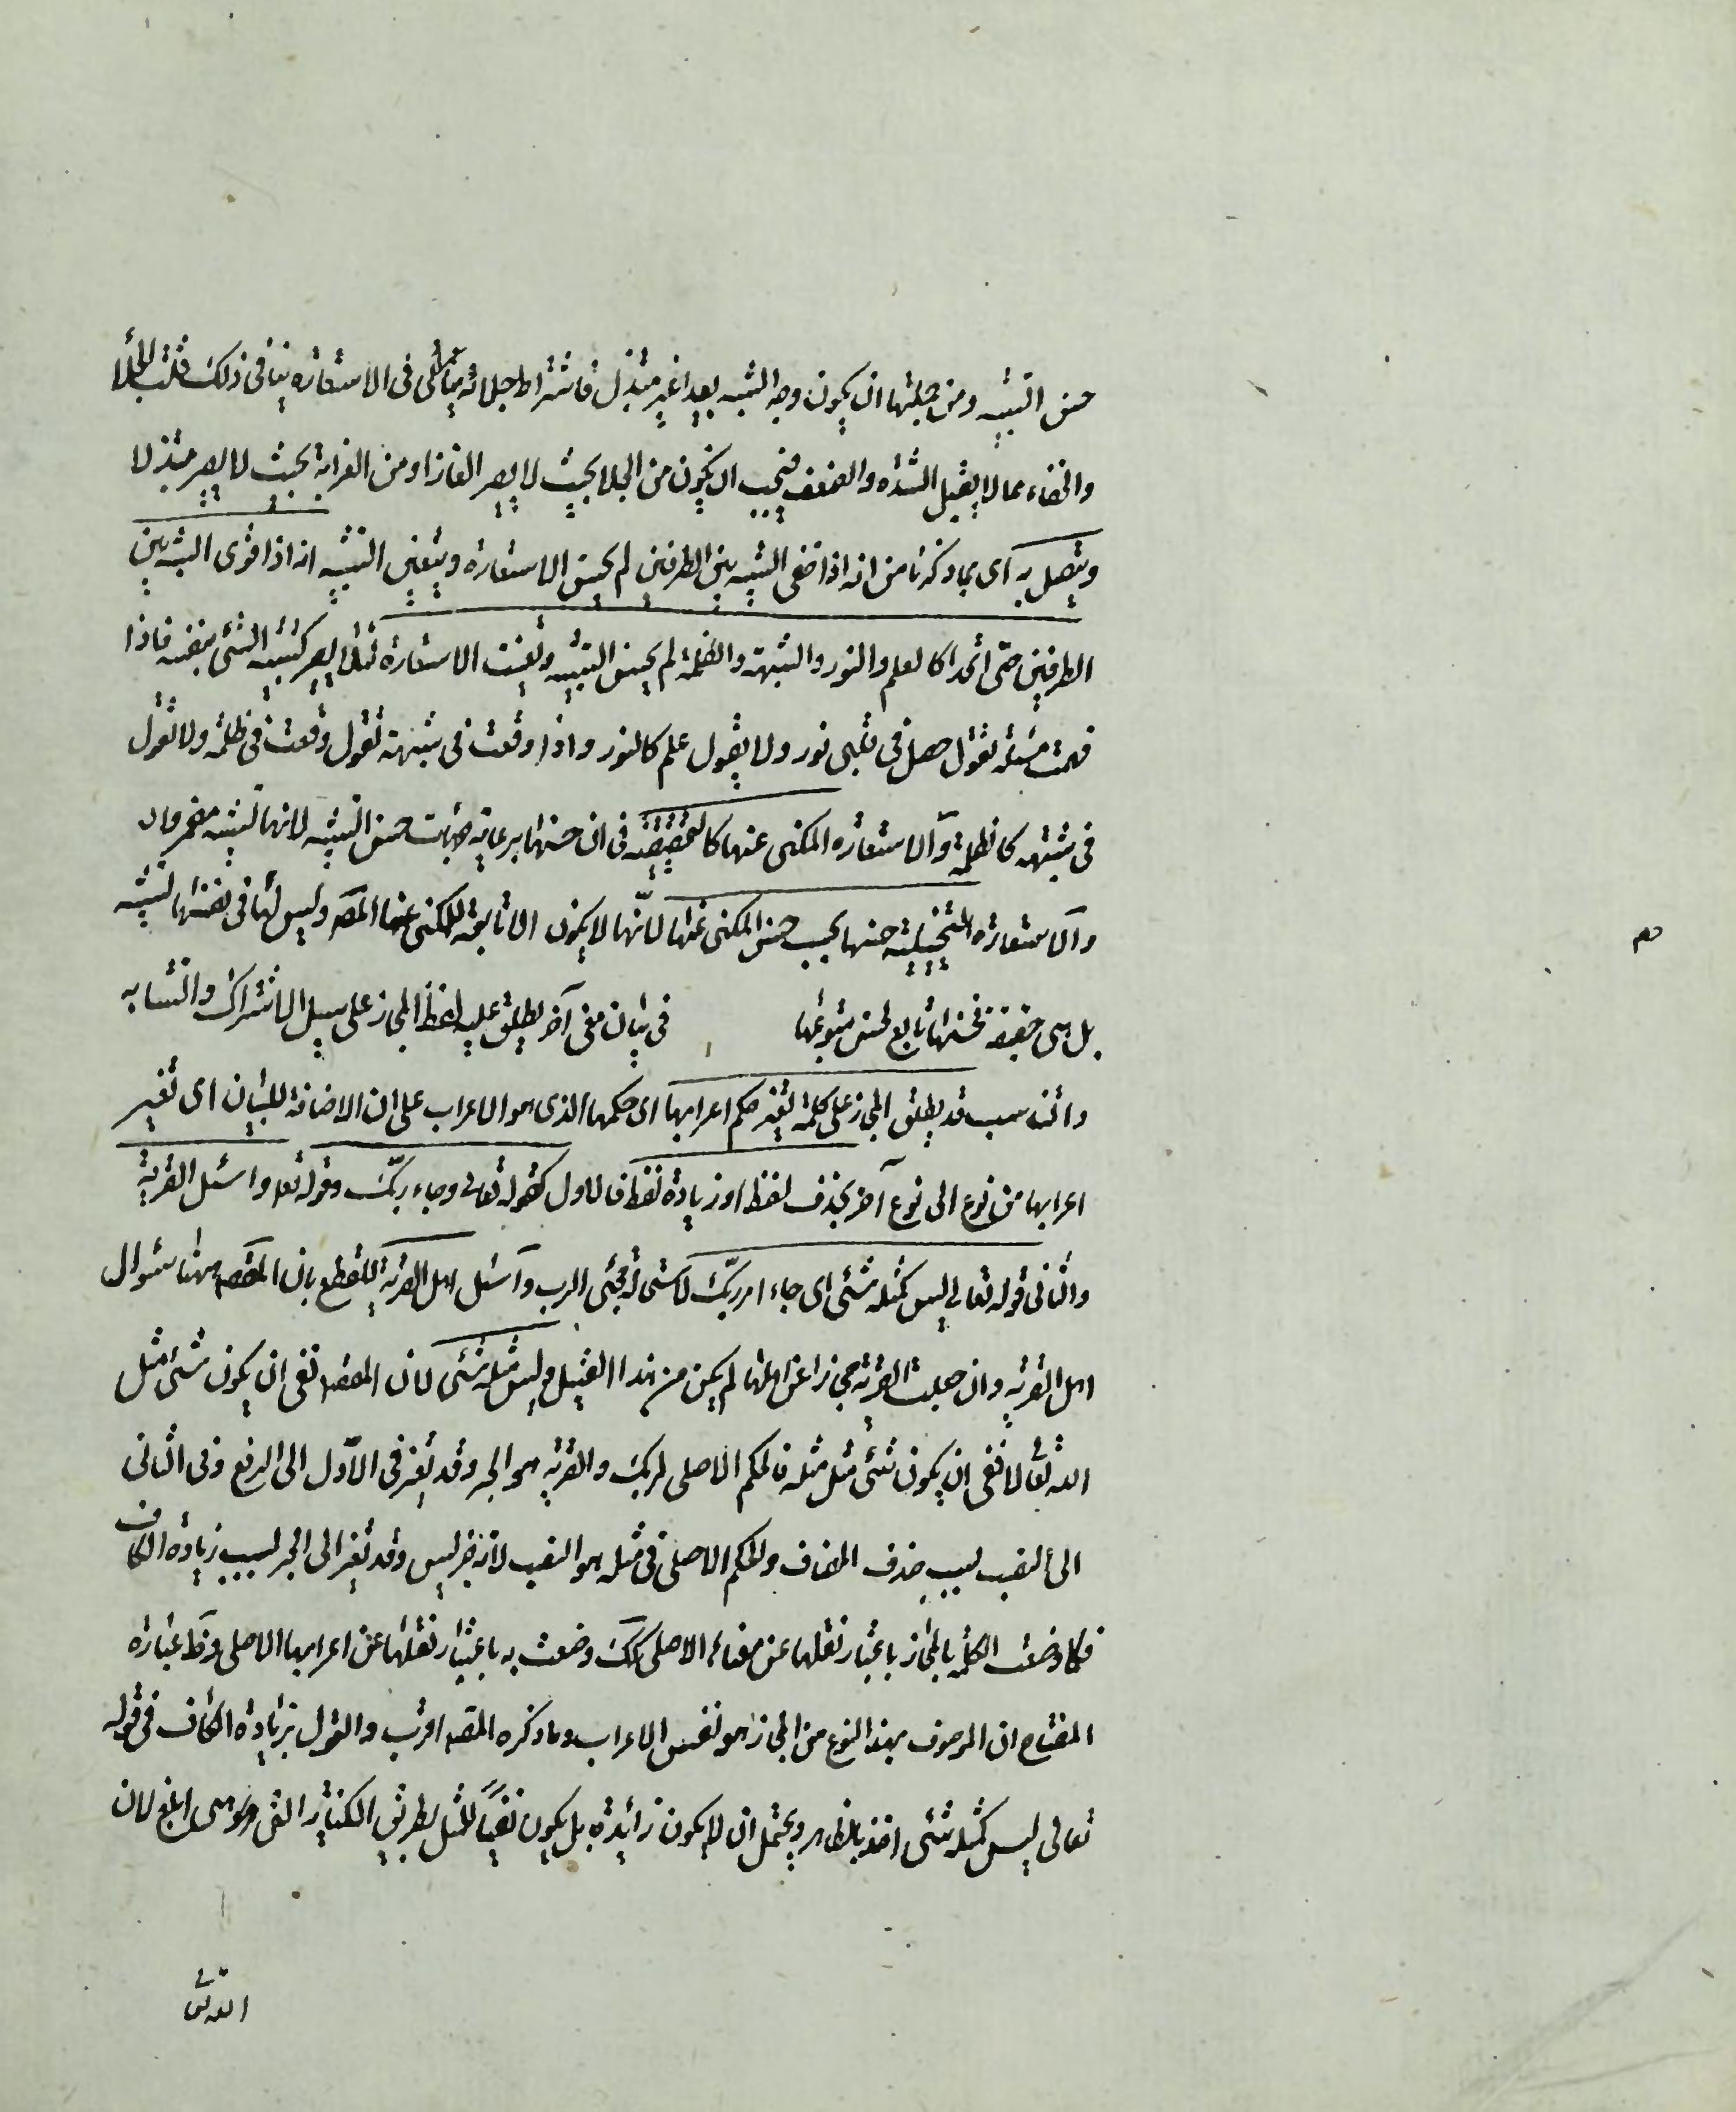 حسن التشبيه ومن جملتها ان يكون وجه الشبه بعيدا غير مبتذل فاشتراط جلائه في الاستعارة ينافي ذلك قلت الجلا
والخفاء مما لا يقبل الشدة والضعف فيجب ان يكون من الجلا بحيث لا يصير الغازا ومن الغرابة بحيث لا يصير مبتذلا
ويتصل به اى بما ذكرنا من انه اذا خفى التشبيه بين الطرفين لم يحسن الاستعارة ويتعين التشبيه انه اذا قوى الشبه بين
الطرفين حتى اتحدا كالعلم والنور والشبهة والظلمة لم يحسن التشبيه وتعينت الاستعارة لئلا يصير كتشبيه الشئ بنفسه فاذا
فهمت مسئلة تقول حصل في قلبى نور ولا يقول علم كالنور واذا وقعت في شبهة تقول وقعت في ظلمة ولا تقول
في شبهة كالظلمة والاستعارة المكنى عنها كالتحقيقية في ان حسنها برعاية جهات حسن التشبيه لانها تشبيه مضمر والا
والاستعارة التخييلية حسنها بحسب حسن المكنى عنها لانّها لا يكون الا تابعة للمكنى عنها المصه وليس لها في نفسها تشبيه
بل هى حقيقة فحسنها تابع لحسن متبوعها في بيان معنى آخر يطلق عليه لفظ المجاز على سبيل الاشتراك والتشابه
وانت قد يطلق المجاز على كلمة تغير حكم اعرابها اى حكمها الذى هو الاعراب على ان الاضافة للبيان اى تغير
اعرابها من نوع الى نوع آخر بحذف لفظ او زيادة لفظ فالاول كقوله تعالى وجاء ربّك وقوله تعه واسئل القرية
والثانى قوله تعالى ليس كمثله شئى اى جاء امر ربّك لاستحالة مجئى الرب واسئل اهل القرية للقطع بان المقصه ههنا سئوال
اهل القرية وان جعلت القرية مجازا عن اهلها لم يكن من هذا القبيل وليس مثله شئى لان المقصه نفى ان يكون شئى مثل
الله تعالى لا نفى ان يكون شئى مثل مثله فالحكم الاصلى لربك والقرية هو الجر وقد تغير في الاوّل الى الرفع وفى الثانى
الى النصب بسبب حذف المضاف والحكم الاصلى في مثله هو النصب لانه خبر ليس وقد تغير الى الجر بسبب زيادة الكاف
فكما وصفت الكلمة بالمجاز باعتبار نقلها عن معناه الاصلى كك وصفت به باعتبار نقلها عن اعرابها الاصلى وظ عبارة
المفتاح ان الموصوف بهذا النوع من المجاز هو نفس الاعراب وما ذكره المصه اقرب والقول بزيادة الكاف في قوله
تعالى ليس كمثله شئى اخذ بالظاهر ويحتمل ان لا يكون زائدة بل يكون نفياً للمثل بطريق الكناية التى هى ابلغ لان
الله تع